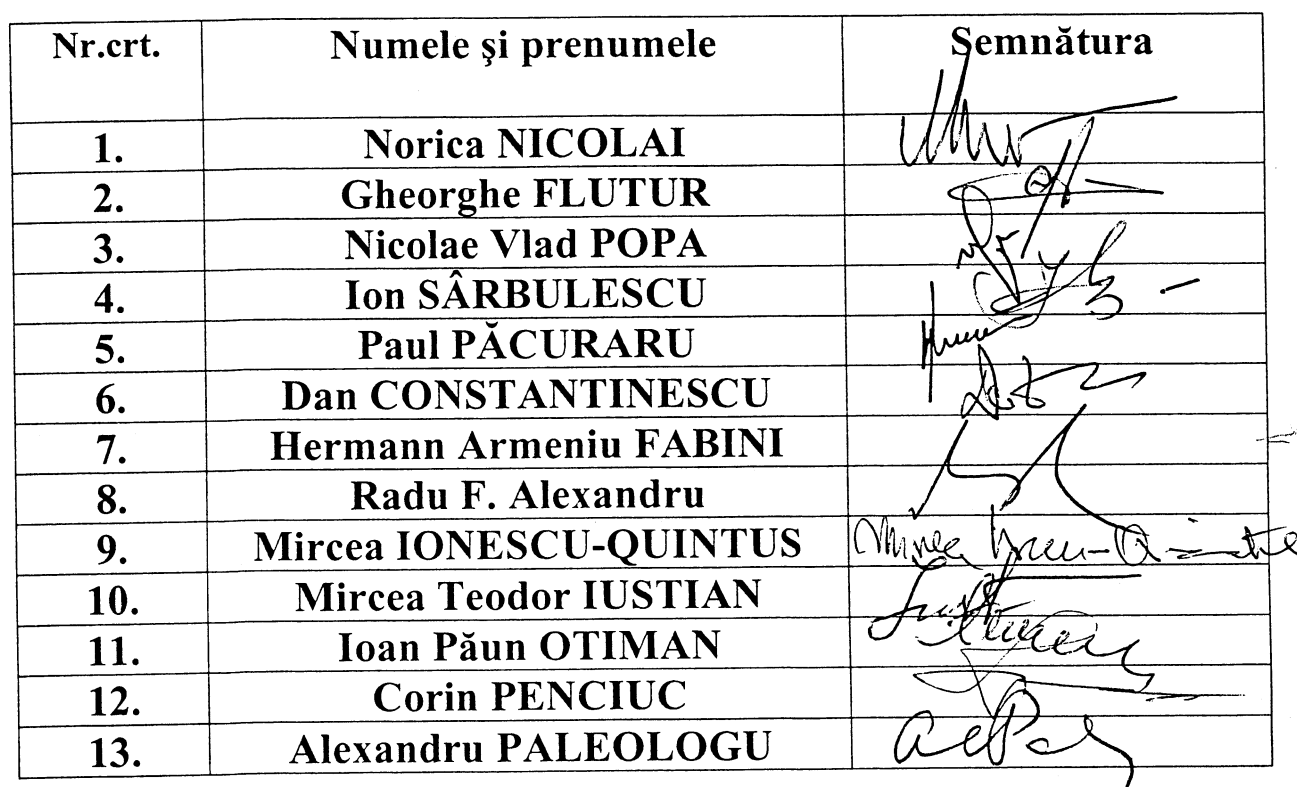 Nr.crt. Numele şi prenumele Semnătura
1. Norica NICOLAI
2. Gheorghe FLUTUR
3. Nicolae Vlad POPA
4. Ion SÂRBULESCU
5. Paul PĂCURARU
6. Dan CONSTANTINESCU
7. Hermann Armeniu FABINI
8. Radu F. Alexandru
9. Mircea IONESCU-QUINTUS Mircea
10. Mircea Teodor IUSTIAN
11. Ioan Păun OTIMAN
12. Corin PENCIUC
13. Alexandru PALEOLOGU